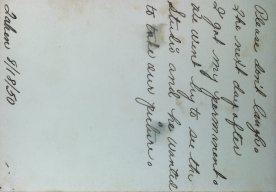 Please don't laugh
The next day after
I got my permanent
We went by to see the
Studio and he wanted
to take our picture.
Taken 8/18/50